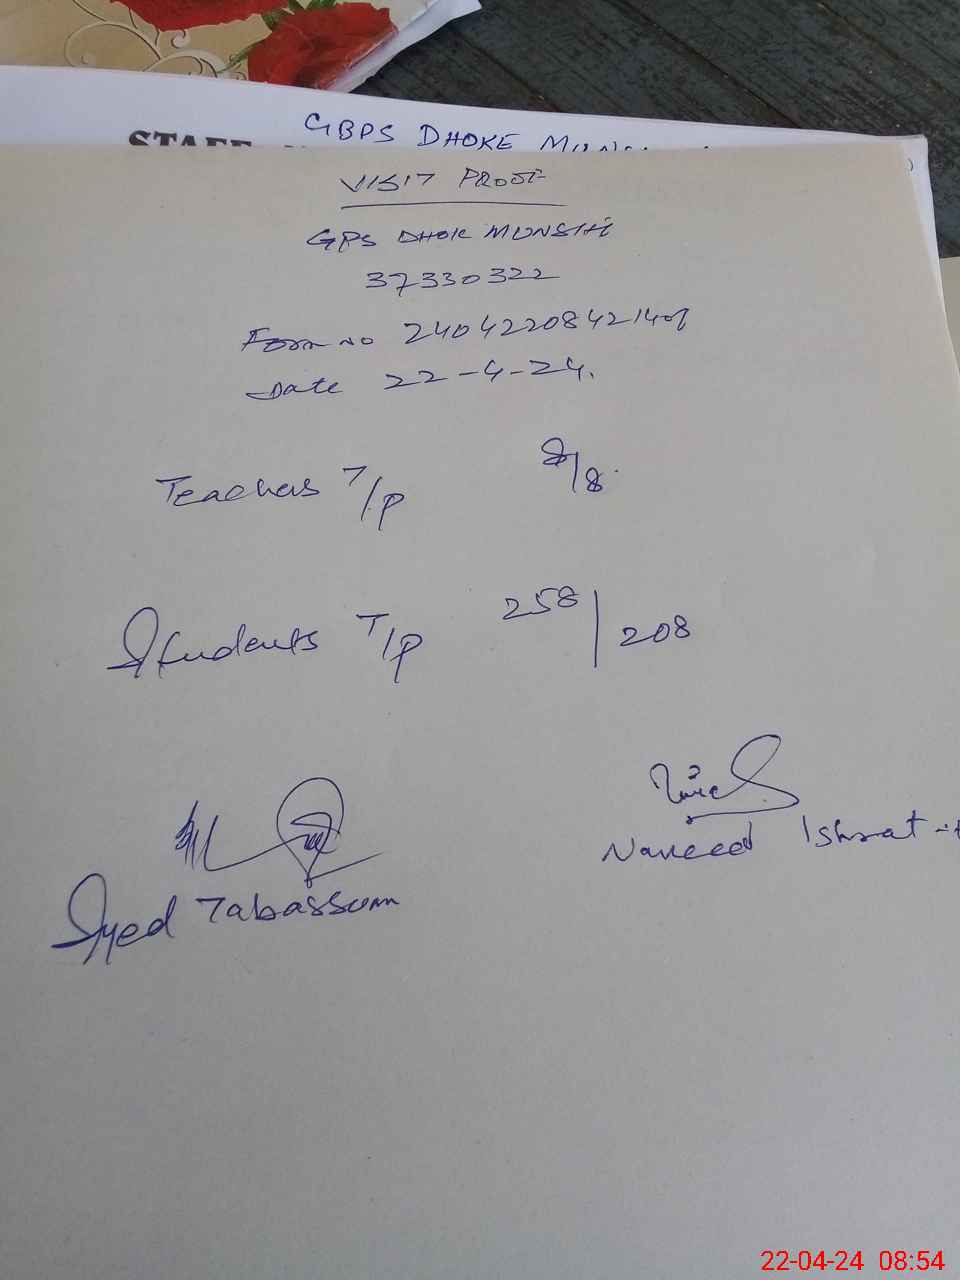 GBPS DHOKE
STAFF
VISIT PROOF
GPS DHOK MUNSHI
37330322
Form no 24042208421408
Date 22-4-24.
Teachers T/P 8/8
Students T/P 258/208
Syed Tabassum
Naveed Ishrat
22-04-24 08:54